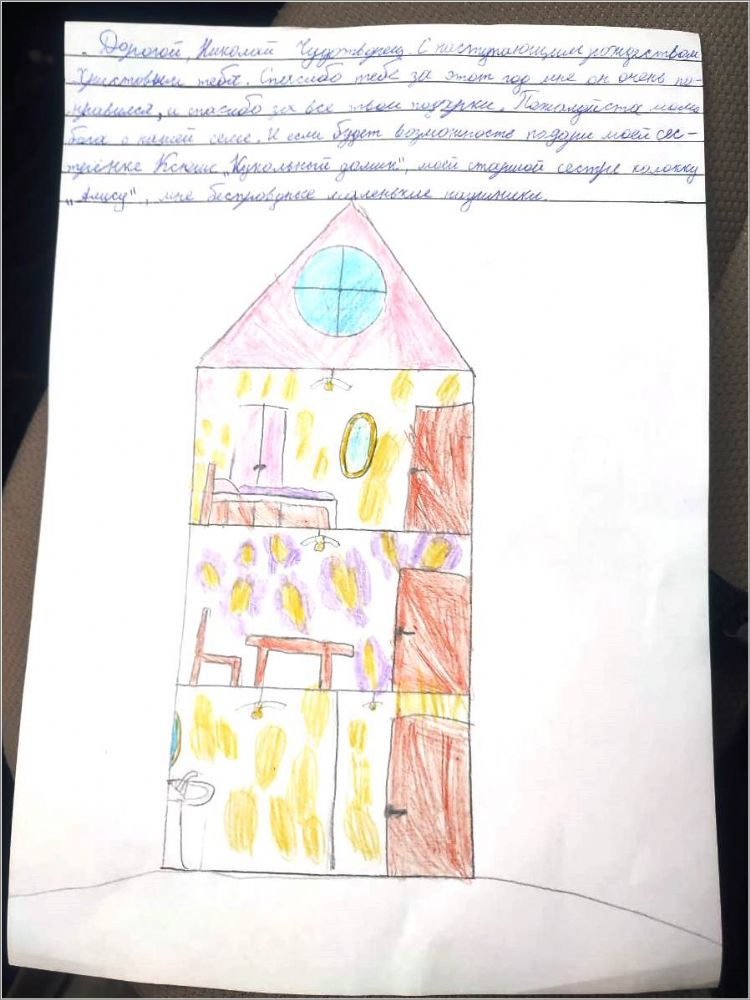 Дорогой, Николай Чудотворец. С наступающим рождеством
Христовым тебя. Спасибо тебе за этот год мне он очень по-
нравился, и спасибо за все твои подарки. Пожалуйста моли
бога о нашей семье. И если будет возможность подари моей сес-
трёнке Ксюше "Кукольный домик", моей старшой сестре колонку
"Алису", мне беспроводные маленькие наушники.